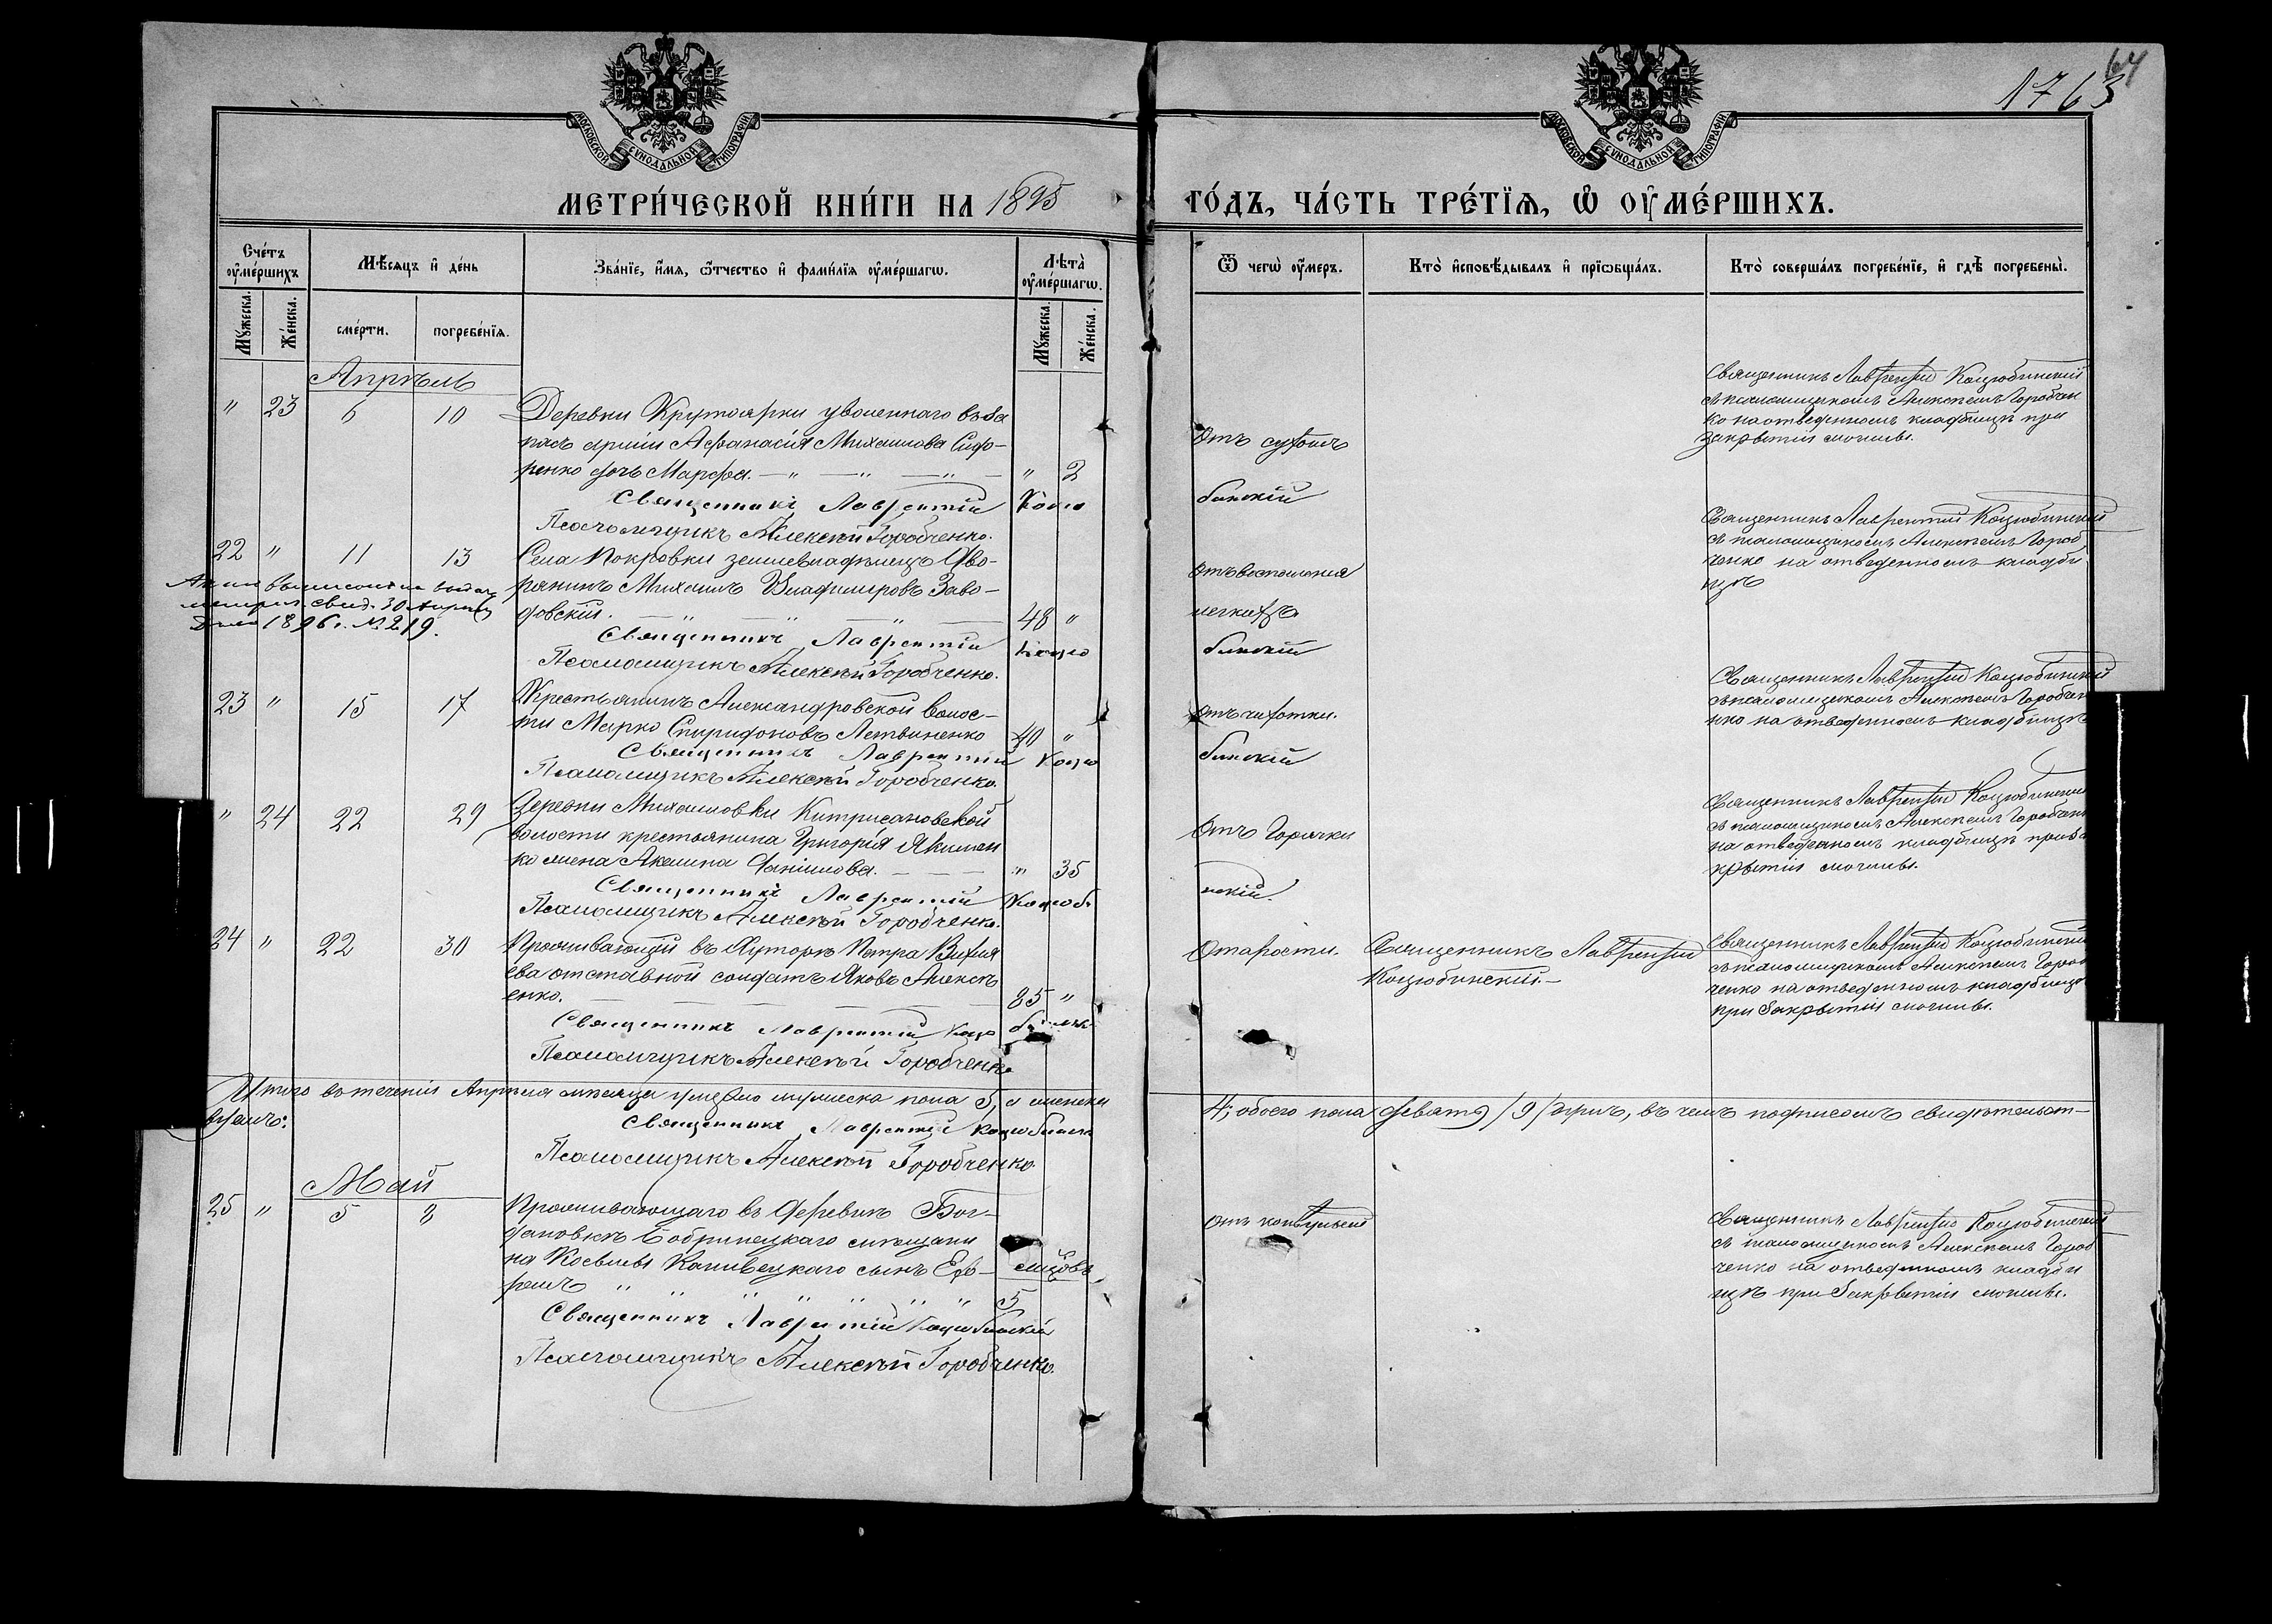 64
№ 763
МОСКОВСКОЙ СѴНОДАЛЬНОЙ ТИПОГРАФІИ
МОСКОВСКОЙ СѴНОДАЛЬНОЙ ТИПОГРАФІИ
МЕТРИ́ЧЕСКОЙ КНИ́ГИ НА 1895
ГО́ДЪ, ЧА́СТЬ ТРЕ́ТЇѦ, Ѡ ОУМЕ́РШИХЪ.
Сче́тъ оуме́ршихъ
Мѣ́сяцъ и де́нь
Зва́нїе, и́мѧ, ѻ́тчество и фами́лїѧ оуме́ршагѡ.
Лѣта̀ оуме́ршагѡ.
Ѿ чегѡ̀ оу́меръ.
Кто̀ исповѣ́дывалъ и прїѡбща́лъ.
Кто̀ соверша́лъ погребе́нїе, и гдѣ̀ погребены̀.
Мꙋ́жеска.
Же́нска.
сме́рти.
погребе́нїѧ.
Мꙋ́жеска.
Же́нска.
Апрѣль
" 23 6 10 Деревни Крутоярки уволеннаго въ за
пасъ арміи Аѳанасія Михаилова Сидо-
ренко дочь Марѳа. " 2
Священникъ Лаврентій Коцю
Псаломщикъ Алексѣй Горобченко.
Отъ сухотъ
бинскій
Священникъ Лаврентій Коцюбинскій
съ псаломщикомъ Алексѣемъ Горобчен
ко на отведенномъ кладбищѣ при
закрытіи могилы.
22 " 11 13 Села Покровки землевладѣлецъ дво-
рянинъ Михаилъ Владимировъ Заво-
довскій. 48 "
Священникъ Лаврентій Коцю
Псаломщикъ Алексѣй Горобченко.
свид. 30 Апрѣля
1896 г. № 219.
Отъ воспаленія
легкихъ
бинскій
Священникъ Лаврентій Коцюбинскій
съ псаломщикомъ Алексѣемъ Гороб
ченко на отведенномъ кладби
щѣ
23 " 15 17 Крестьянинъ Александровской волос-
ти Марко Спиридоновъ Литвиненко 40 "
Священникъ Лаврентій Коцю
Псаломщикъ Алексѣй Горобченко.
Отъ чахотки.
бинскій
Священникъ Лаврентій Коцюбинскій
съ псаломщикомъ Алексѣемъ Горобче
нко на отведенномъ кладбищѣ
" 24 22 29 Деревни Михаиловки Китрисановской
волости крестьянина Григорія Якимен
ко жена Акелина Данилова. " 35
Священникъ Лаврентій Коцюби
Псаломщикъ Алексѣй Горобченко.
Отъ Горячки
нскій.
Священникъ Лаврентій Коцюбинскій
съ псаломщикомъ Алексѣемъ Горобченко
на отведенномъ кладбищѣ при за
крытіи могилы.
24 " 22 30 Проживающій въ Хуторѣ Петра
ева отставной солдатъ Яковъ Алексѣ
енко. 85 "
Священникъ Лаврентій Коцюбинск
Псаломщикъ Алексѣй Горобченко
Отарости.
Священникъ Лаврентій
Коцюбинскій.
Священникъ Лаврентій Коцюбинскій
съ псаломщикомъ Алексѣемъ Гороб
ченко на отведенномъ кладбищѣ
при закрытіи могилы.
Итого въ теченіи Апрѣля мѣсяца умерло мужеска пола 5, а женска
4; обоего пола девять /9/ душъ, въ чемъ подписомъ свидѣтельст-
вуемъ:
Священникъ Лаврентій Коцюбинск
Псаломщикъ Алексѣй Горобченко.
Май
25 " 5 8 Проживающаго въ деревнѣ Бог-
дановкѣ Бобринецкаго мѣщани
на Сынъ Еф-
ремъ 5
Священникъ Лаврентій Коцюбинскій
Псаломщикъ Алексѣй Горобченко.
Отъ
Священникъ Лаврентій Коцюбинскій
съ псаломщикомъ Алексѣемъ Гороб
ченко на отведенномъ кладби
щѣ при закрытіи могилы.